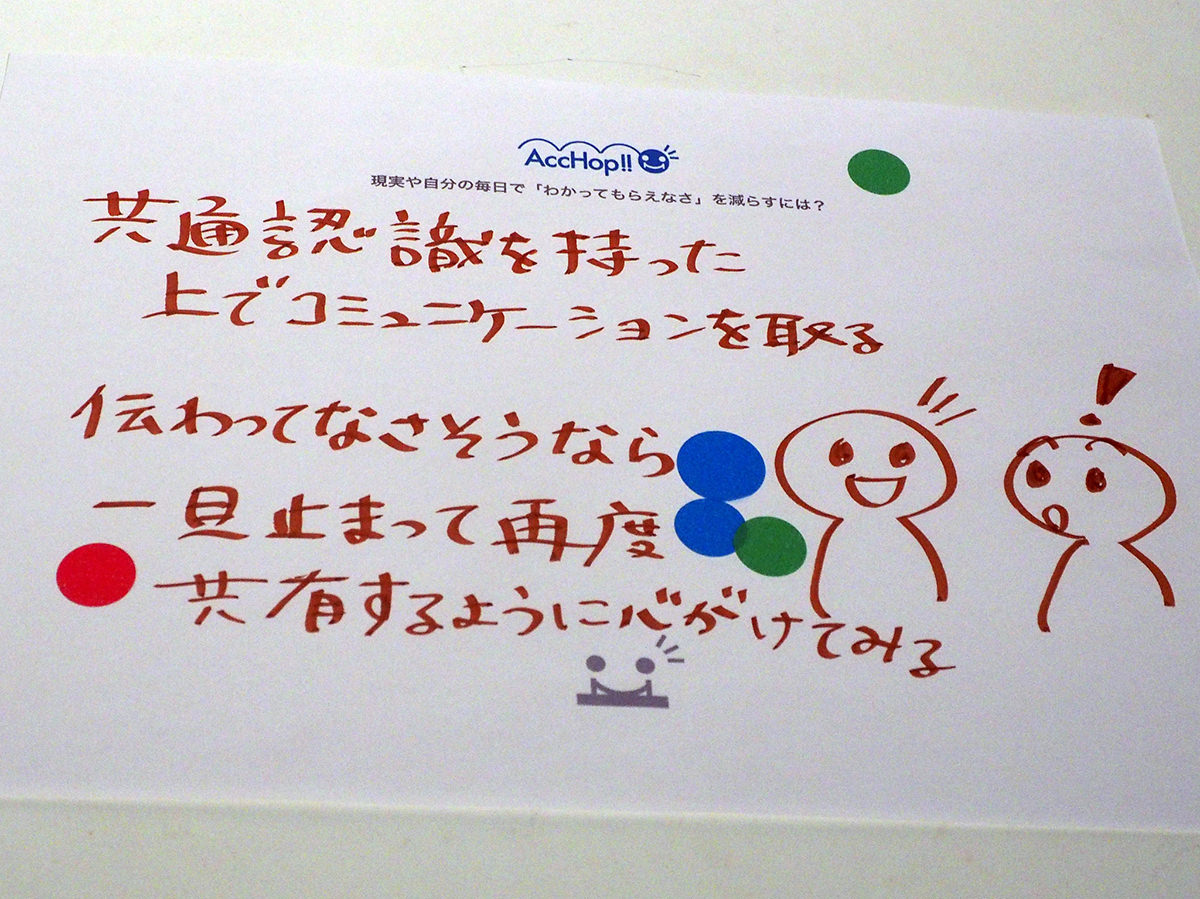 AccHop!!
現実や自分の毎日で「わかってもらえなさ」を減らすには？
共通認識を持った
上でコミュニケーションを取る
伝わってなさそうなら
一旦止まって再度
共有するように心がけてみる